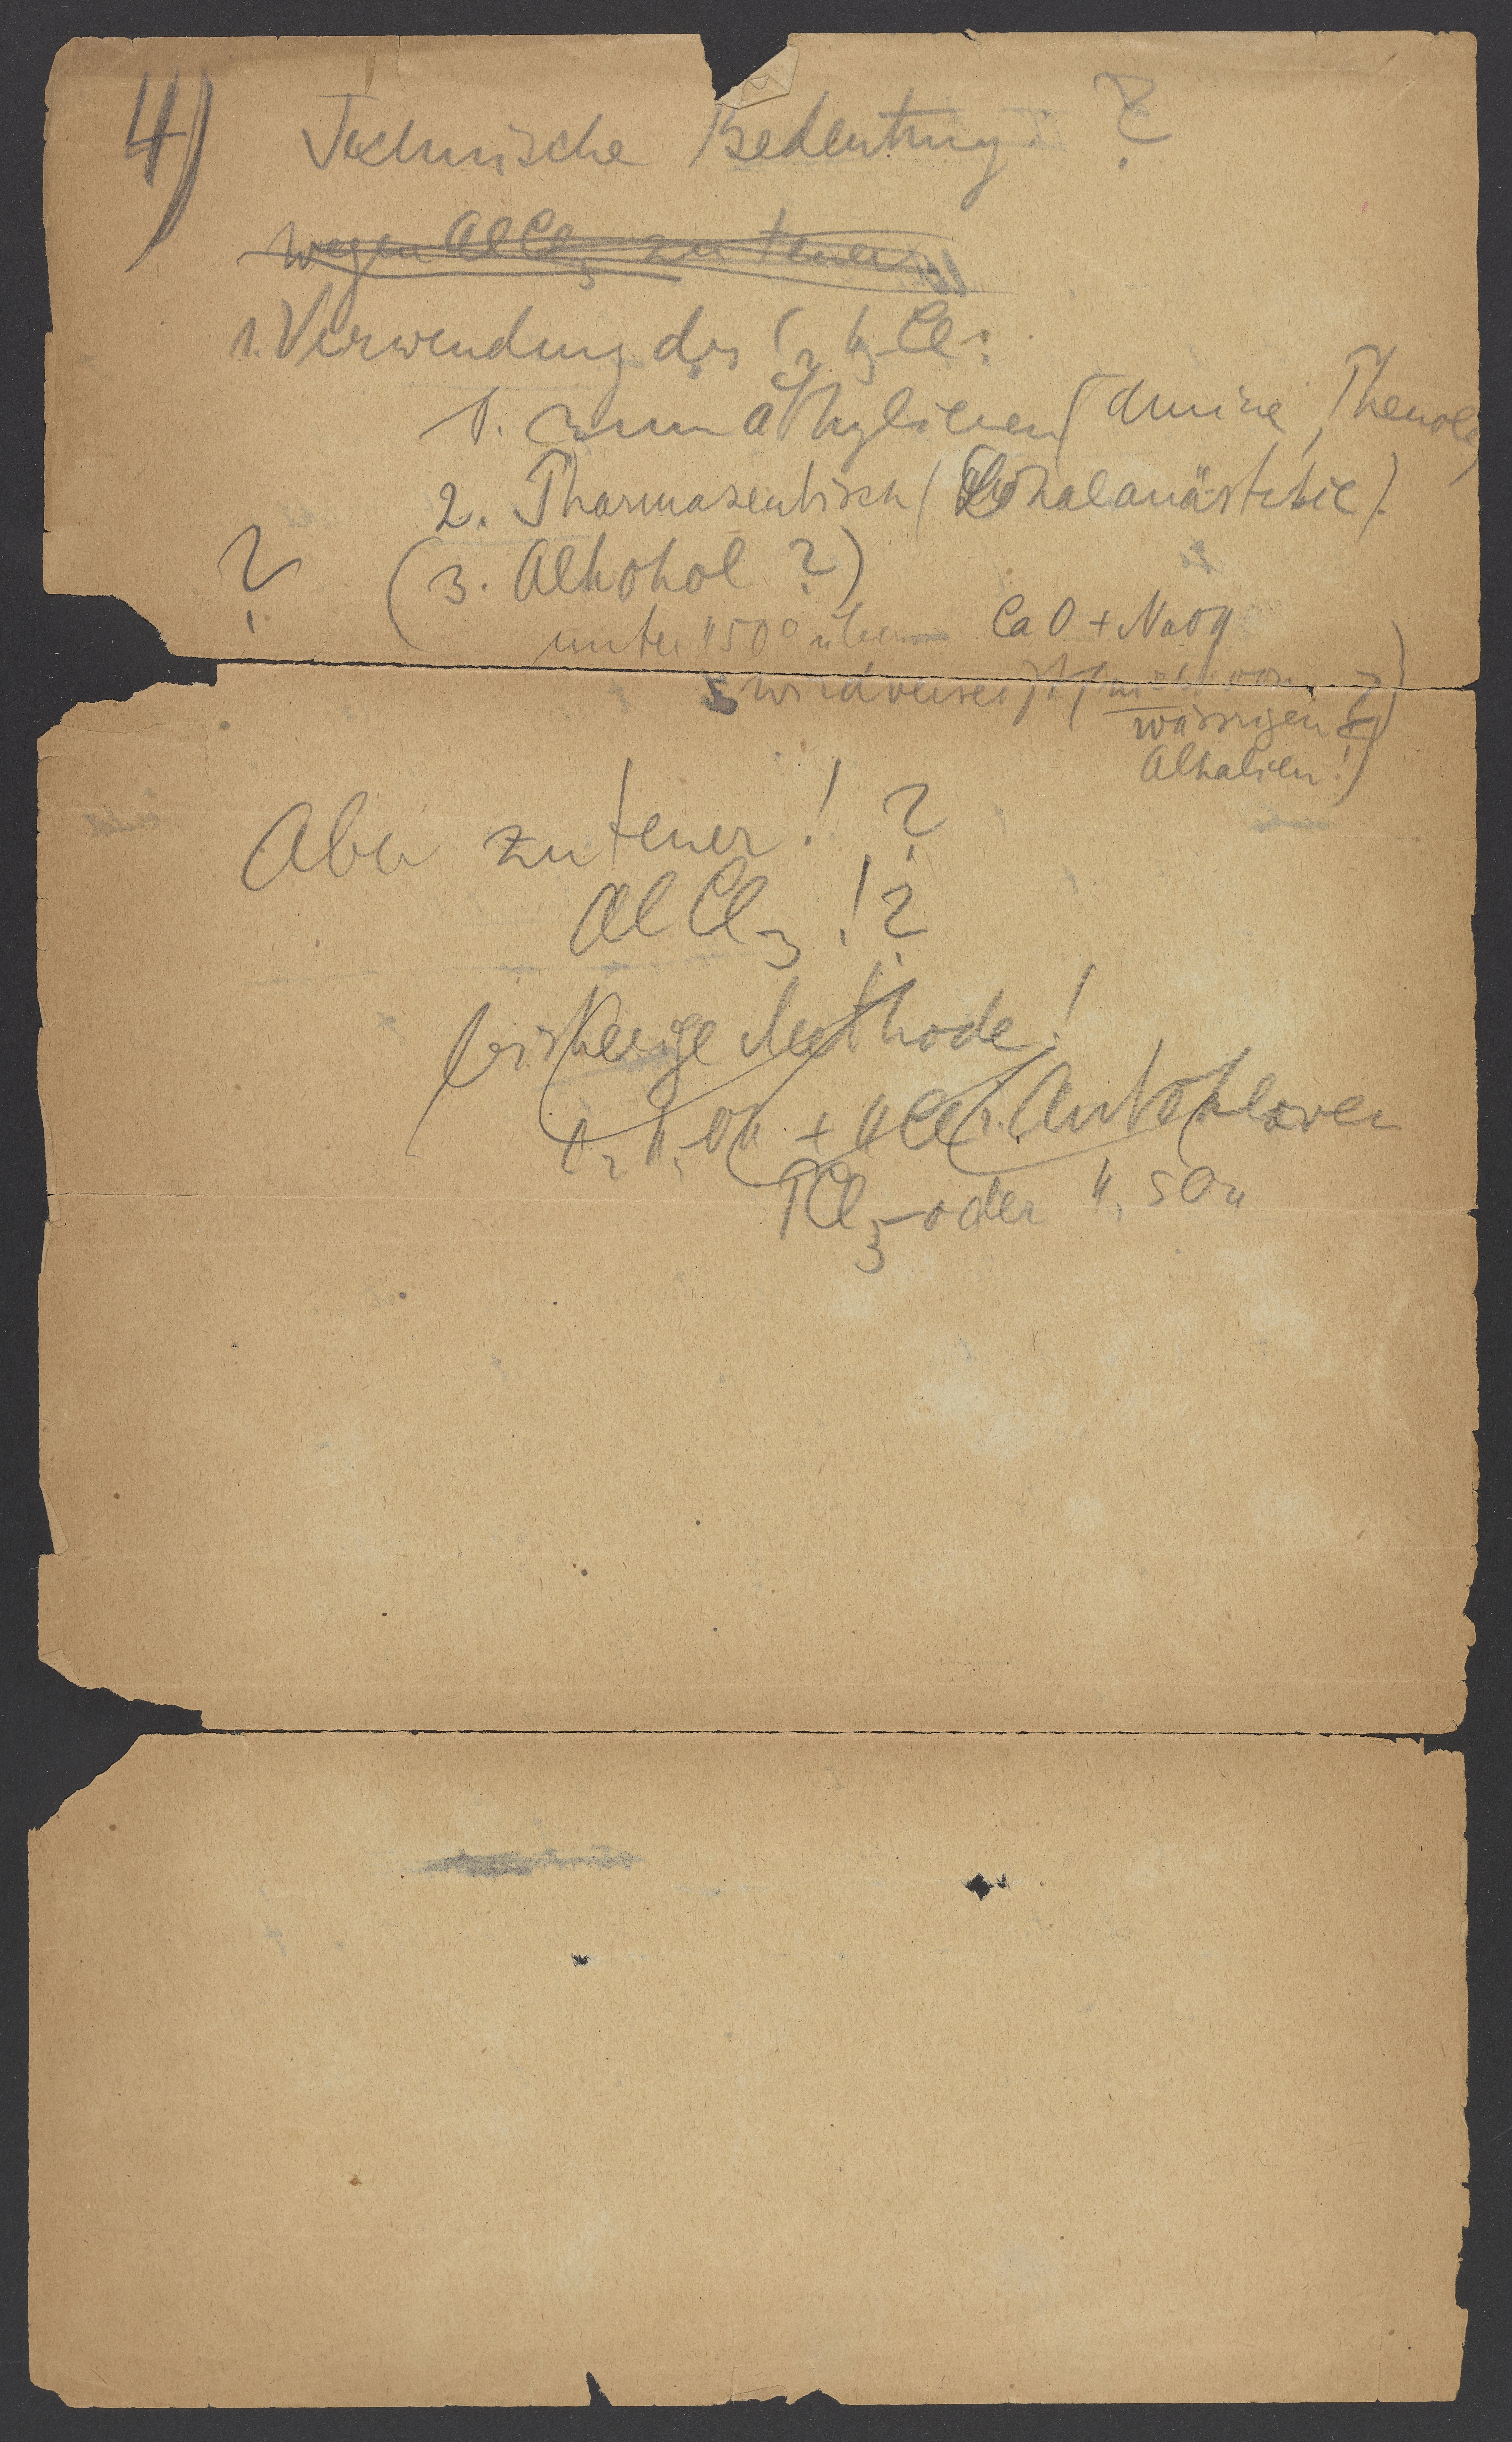 4) Technische Bedeutung: ?
wegen AlCl3 zu teuer.
1. Verwendung des C2H5Cl:
1. zum äthylieren (Amine, Phenole)
2. Pharmazeutisch (Lokalanästhesie).
? (3. Alkohol ?)
unter 150° über CaO + NaOH
wird verseift (nicht von
wässrigen
Alkalien!)
Aber zu teuer! ?
AlCl3 !?
bisherige Methode!
C2H5OH + HCl i. Autoklaven
PCl3 oder H2SO4